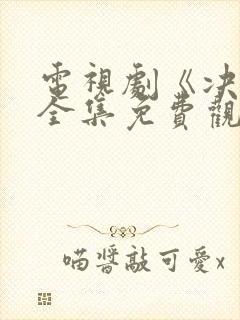 電視劇《决
全集免費觀
喵醬敲可愛x